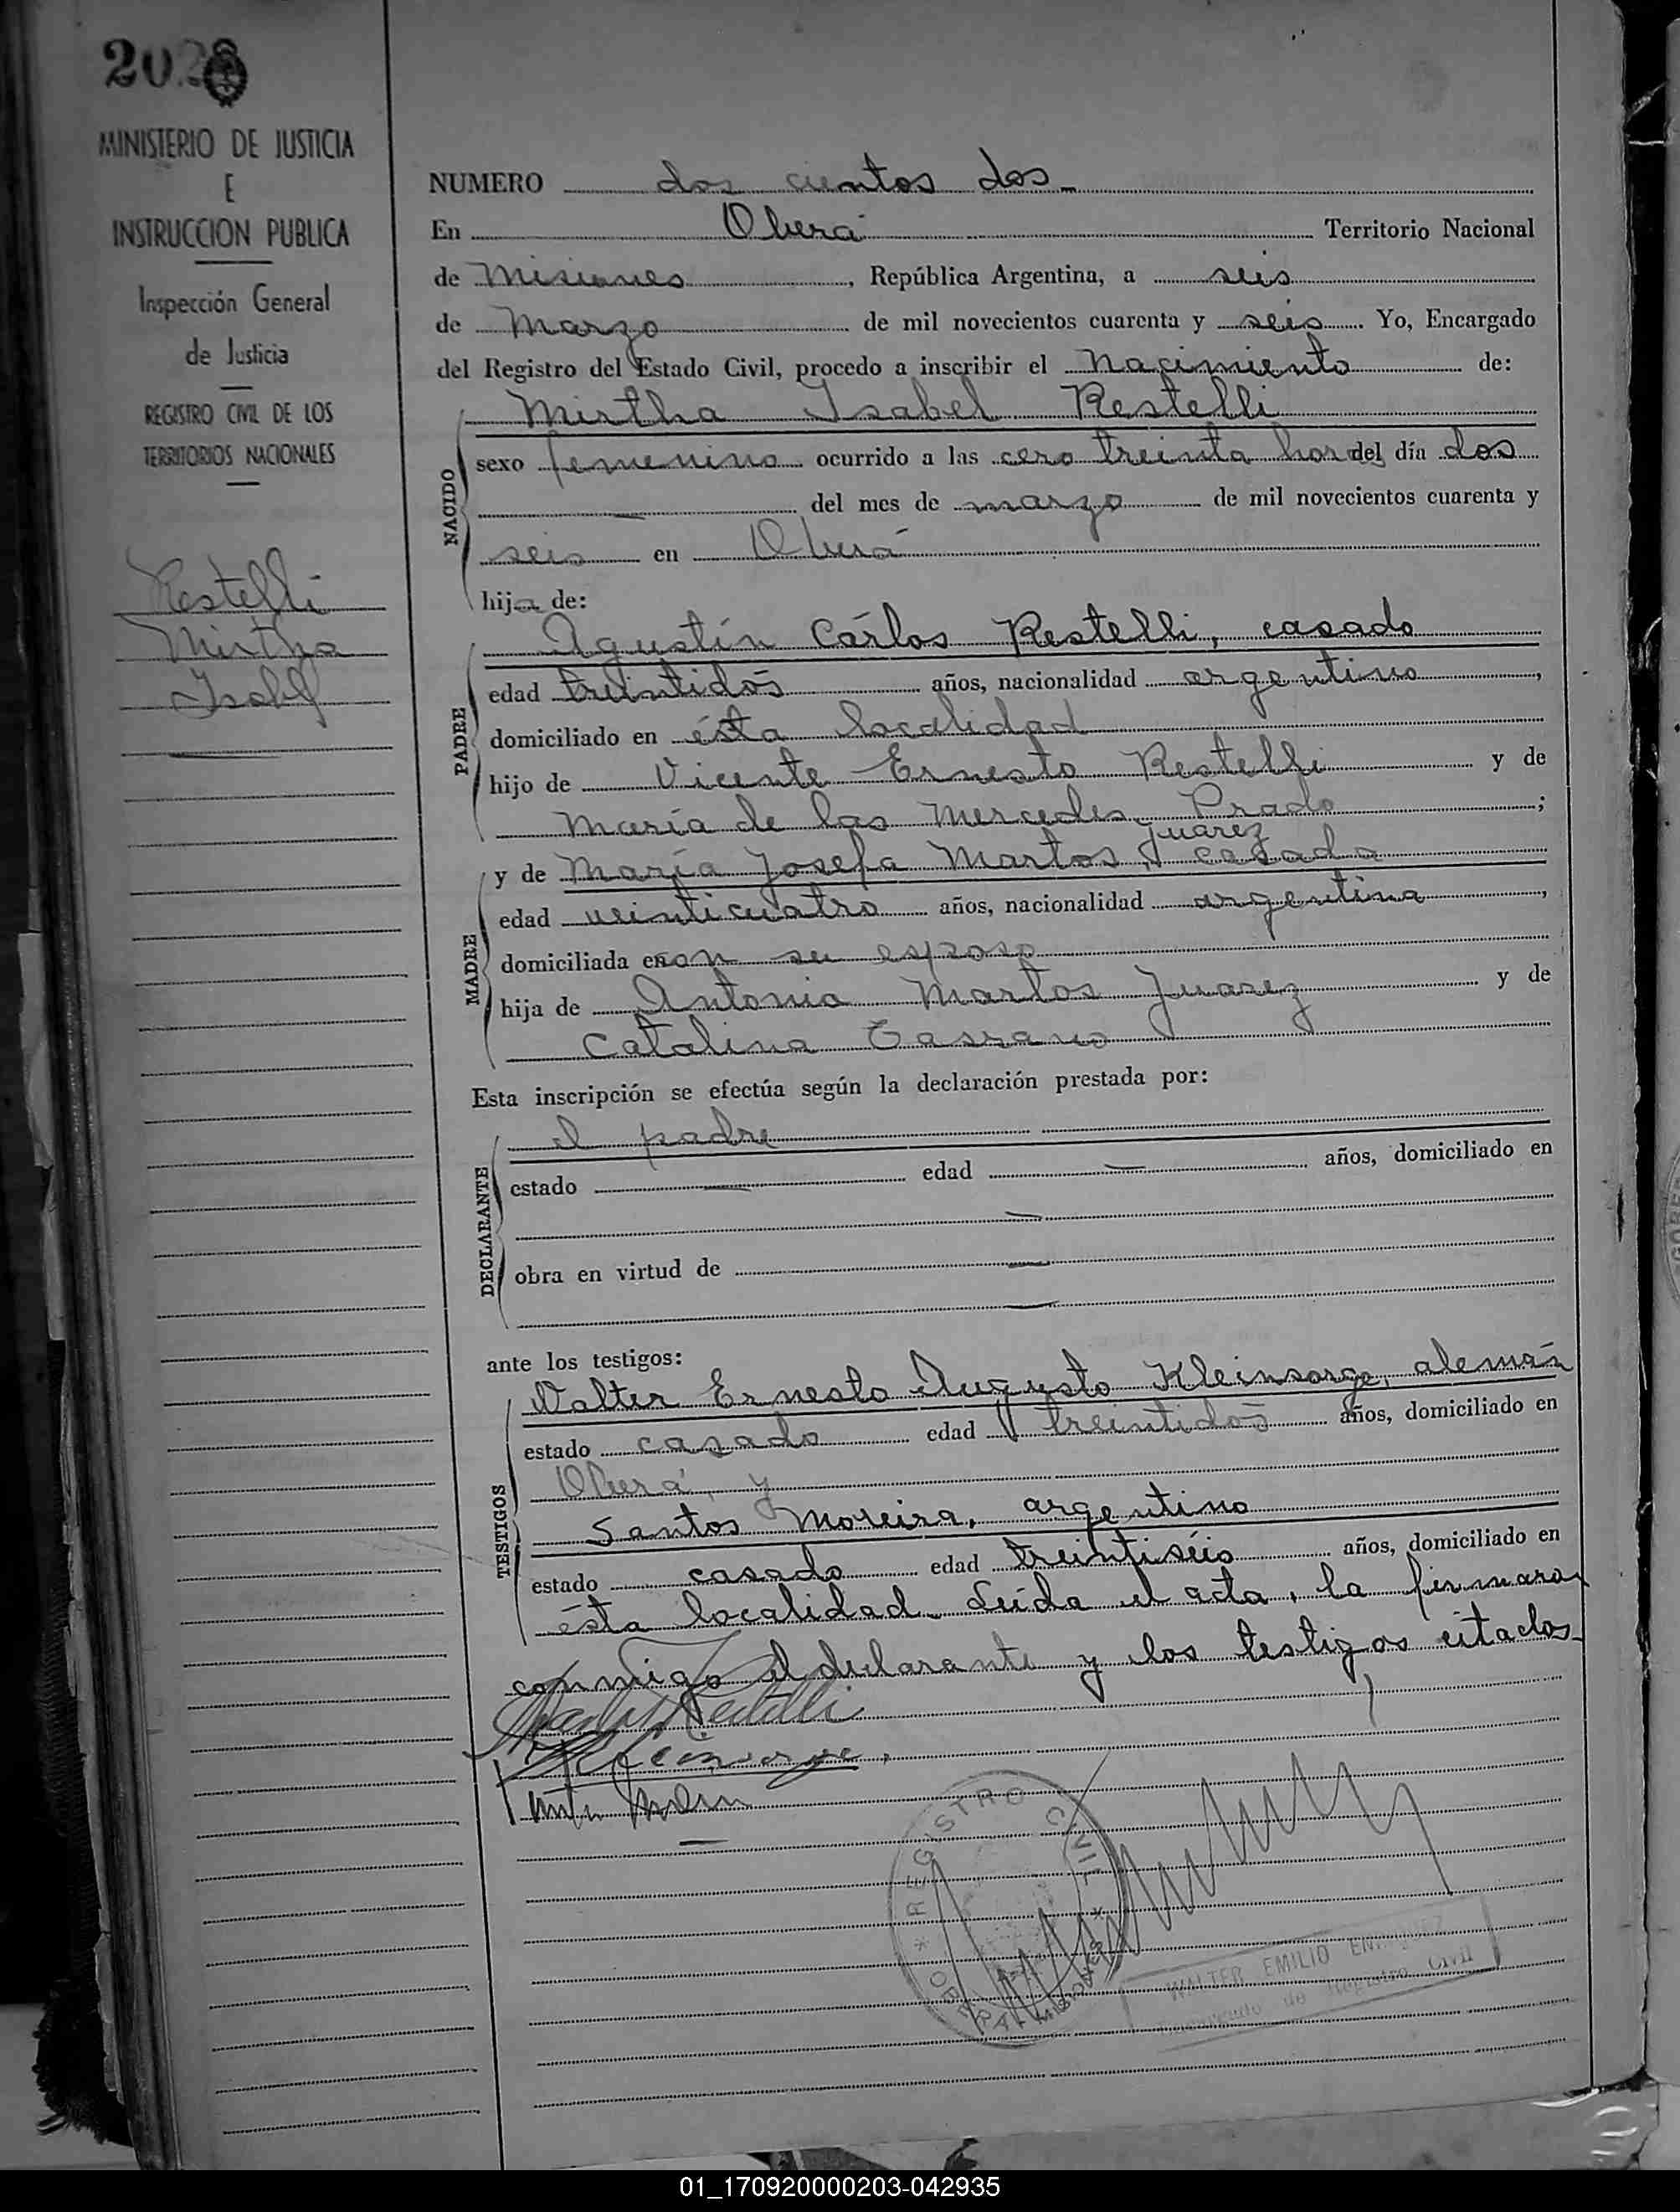 202
MINISTERIO DE JUSTICIA
E
INSTRUCCION PUBLICA
Inspección General
de Justicia
REGISTRO CIVIL DE LOS
TERRITORIOS NACIONALES
Restelli
Mirtha
Isabel
NUMERO dos cientos dos
En Oberá Territorio Nacional
de Misiones, República Argentina, a seis
de Marzo de mil novecientos cuarenta y seis. Yo, Encargado
del Registro del Estado Civil, procedo a inscribir el Nacimiento de:
Mirtha Isabel Restelli
NACIDO
sexo femenino ocurrido a las cero treinta horas del día dos
del mes de marzo de mil novecientos cuarenta y
seis en Oberá
hija de:
PADRE
Agustín Cárlos Restelli, casado
edad treintidós años, nacionalidad argentino,
domiciliado en ésta localidad
hijo de Vicente Ernesto Restelli y de
María de las Mercedes Prado;
MADRE
Juarez
y de María Josefa Martos, casada
edad veinticuatro años, nacionalidad argentina,
domiciliada en con su esposo
hija de Antonio Martos Juarez y de
Catalina
Esta inscripción se efectúa según la declaración prestada por:
DECLARANTE
el padre
estado — edad — años, domiciliado en
—
obra en virtud de —
—
ante los testigos:
TESTIGOS
Walter Ernesto Augusto Kleinsorge, alemán
estado casado edad treintidós años, domiciliado en
Oberá, y
Santos Moreira, argentino
estado casado edad treintiséis años, domiciliado en
ésta localidad. Leída el acta, la firmaron
conmigo el declarante y los testigos citados
Restelli
Kleinsorge
REGISTRO CIVIL * OBERA - MISIONES *
WALTER EMILIO ENRIQUEZ
Encargado de Registro Civil
01_170920000203-042935